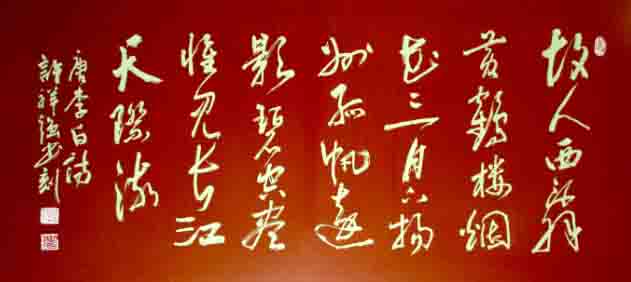 故人西辞
黄鶴楼烟
花三月下揚
州孤帆遠
影碧空尽
惟见长江
天際流
唐李白诗
許祥强书刻